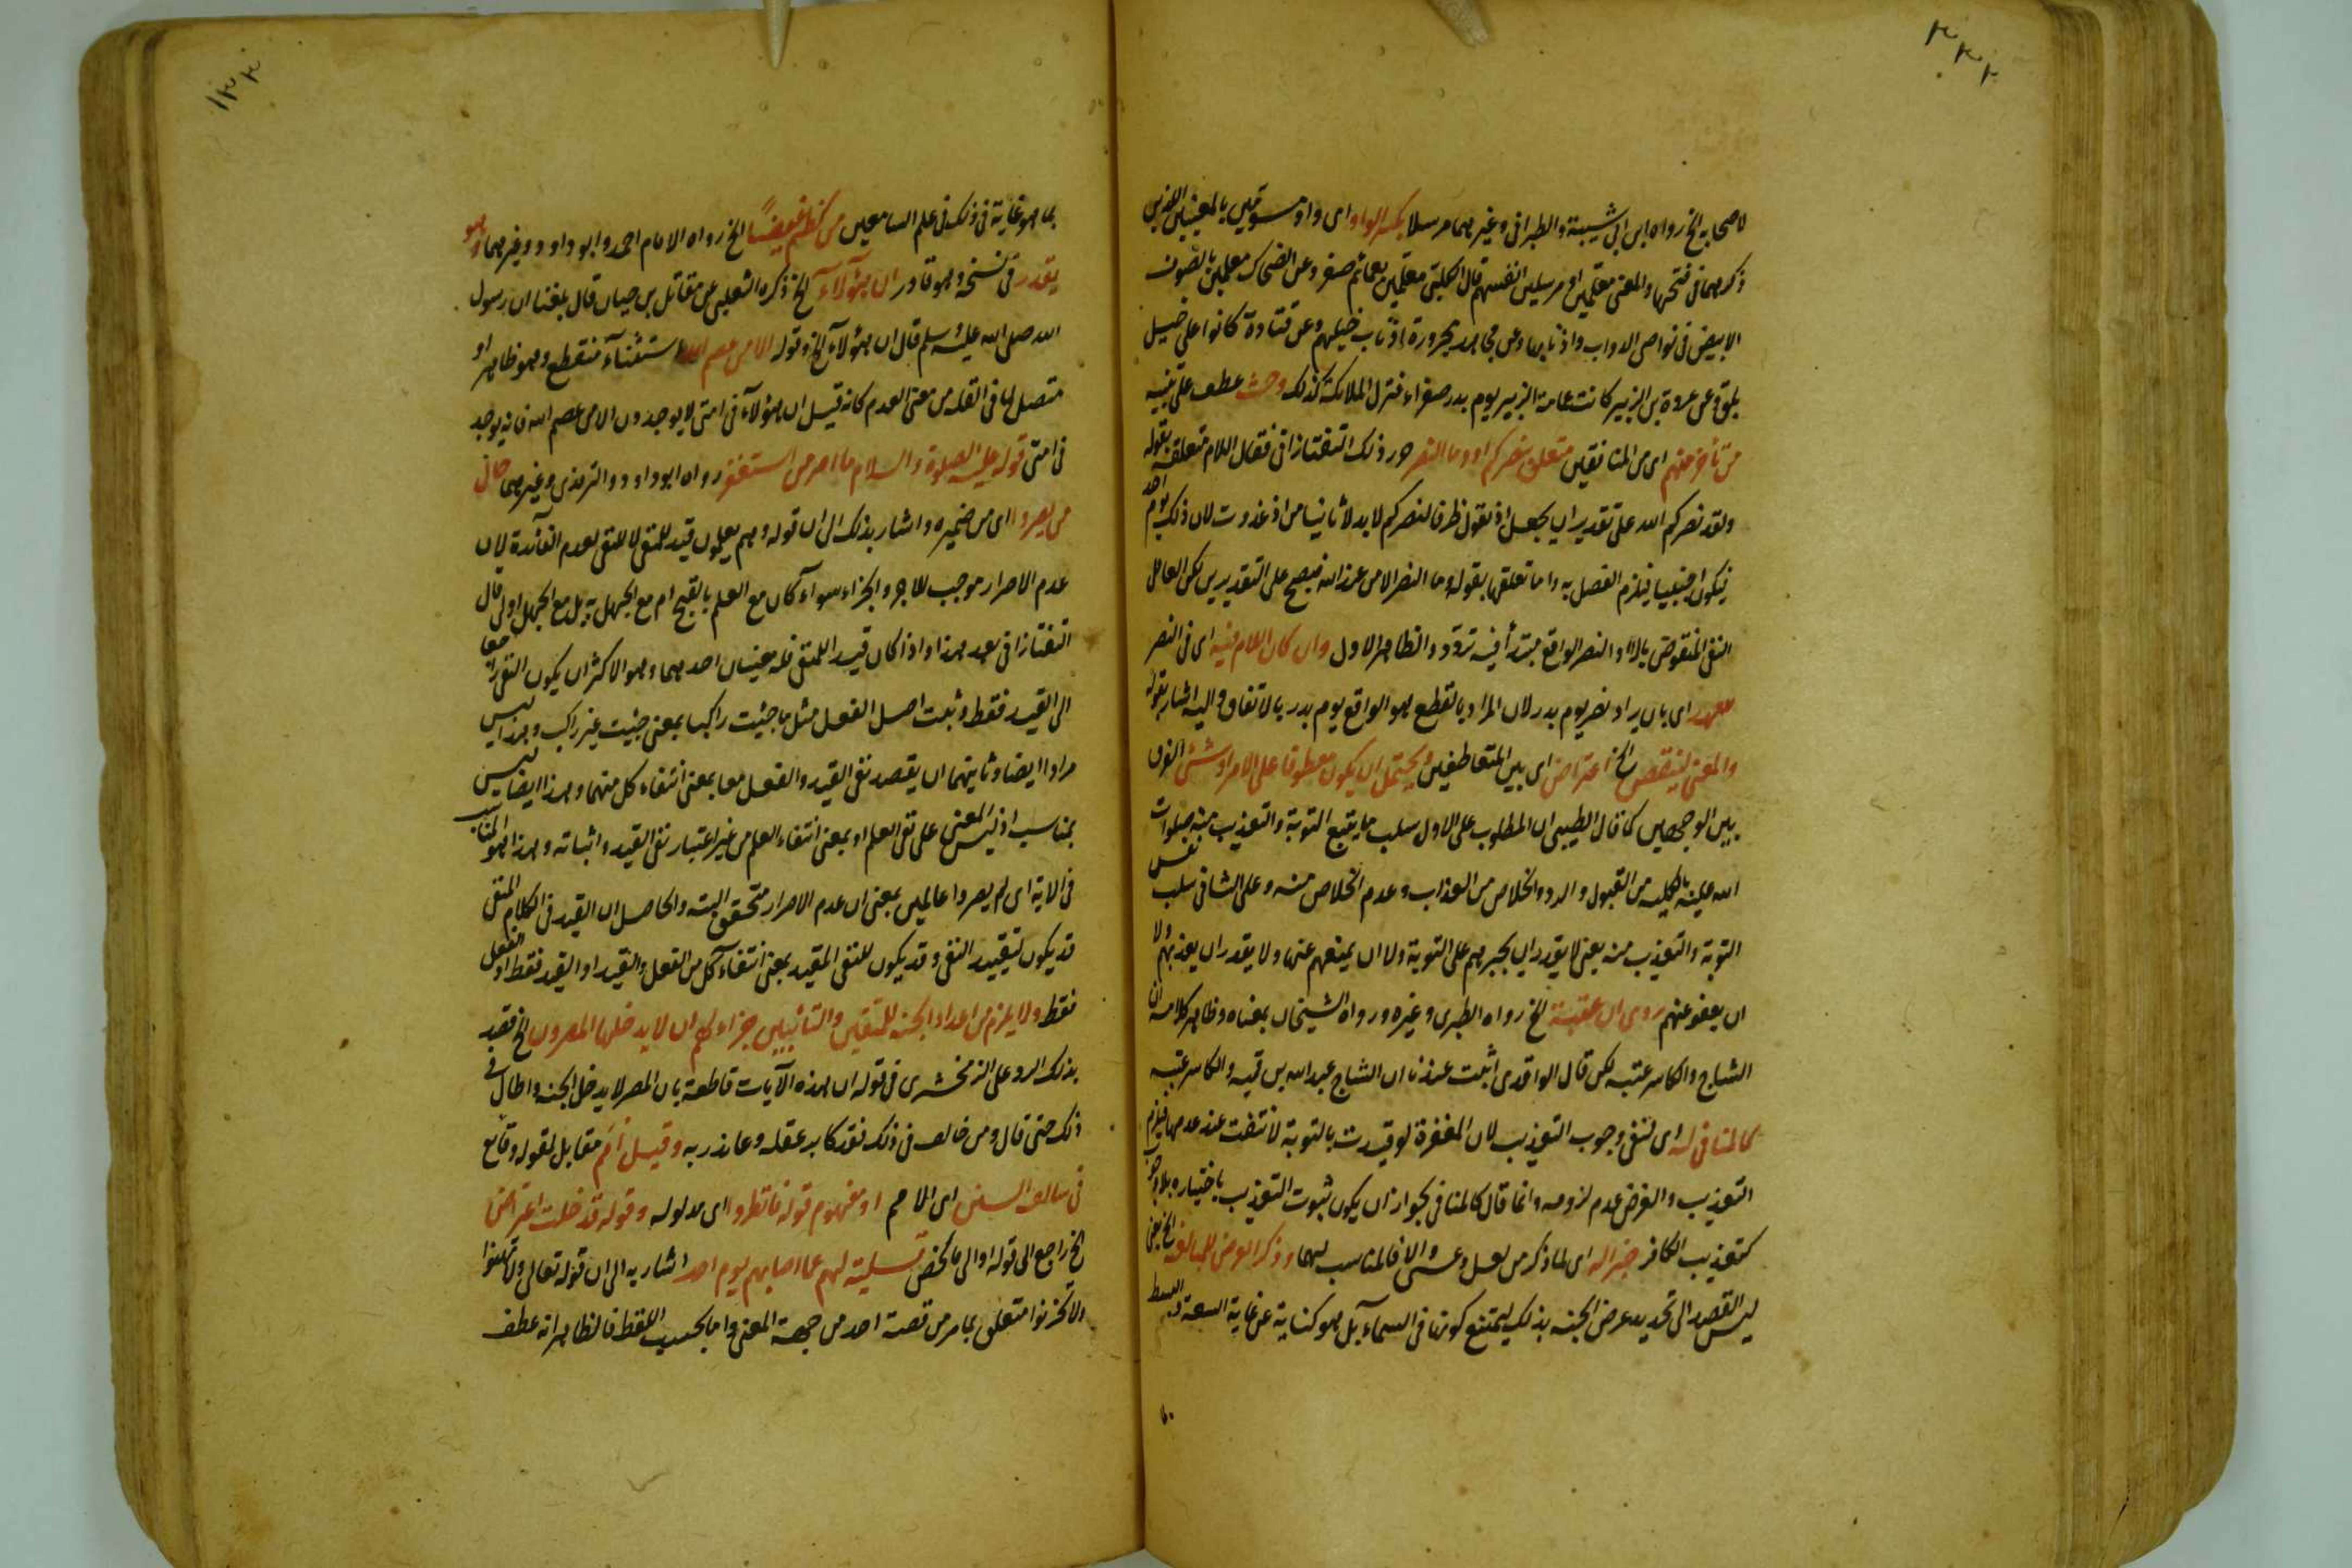 ٣٣٢
لاصحابه الخ رواه ابن ابى شيبة والطبرانى وغيرهما مرسلا بكسر الواو اى واو مسومين بالمعنيين الذين
ذكرهما فى فتحها والمعنى معلمين او مرسلين انفسهم قال الكلبى معلمين بعمائم صفر وعن الضحاك معلمين بالصوف
الابيض فى نواصى الدواب واذنابها وعن مجاهد مجزورة اذناب خيلهم وعن قتادة كانوا على خيل
بلق وعن عروة بن الزبير كانت عمامة الزبير يوم بدر صفراء فنزل الملائكة كذلك وحث عطف على تنبيه
من تأخر عنهم اى من المنافقين متعلق بنصركم او وما النصر ورد ذلك التفتازانى فقال اللام متعلقة بقوله
ولقد نصركم الله على تقدير ان يجعل اذ تقول ظرفا لنصركم لا بدلا ثانيا من اذ غدوت لان ذلك يوم احد
فيكون اجنبيا فيلزم الفصل به واما تعلقها بقوله وما النصر الا من عند الله فيصح على التقديرين لكن العامل
النفى المنقوض بالا او النصر الواقع مبتدأ فيه تردد والظاهر الاول وان كان اللام فيه اى فى النصر
للعهد اى بان يراد نصر يوم بدر لان المراد بالقطع هو الواقع يوم بدر بالاتفاق واليه اشار بقوله
والمعنى لينقص الخ اعتراض اى بين المتعاطفين ويحتمل ان يكون معطوفا على الامر او شئ الفرق
بين الوجهين كما قال الطيبى ان المطلوب على الاول سلب ما يتبع التوبة والتعذيب منه صلوات
الله عليه بالكلية من القبول والرد والخلاص من العذاب وعدم الخلاص منه وعلى الثانى سلب نفس
التوبة والتعذيب منه يعنى لا يقدر ان يجبرهم على التوبة ولا ان يمنعهم عنها ولا يقدر ان يعذبهم ولا
ان يعفو عنهم روى ان عتبة الخ رواه الطبرى وغيره ورواه الشيخان بمعناه وظاهر كلامه ان
الشاج والكاسر عتبة لكن قال الواقدى اثبت عندنا ان الشاج عبد الله بن قمية والكاسر عتبة
كالمنافى له اى لنفى وجوب التعذيب لان المغفرة لو قيدت بالتوبة لانتفت عند عدمها فيلزم
التعذيب والغرض عدم لزومه وانما قال كالمنافى لجواز ان يكون ثبوت التعذيب باختياره بلا وجوب
كتعذيب الكافر خبر له اى لما ذكر من لعل وعسى والا فالمناسب لهما وذكر العرض للمبالغة الخ يعنى
ليس القصد الى تحديد عرض الجنة بذلك ليمتنع كونها فى السماء بل هو كناية عن غاية السعة والبسط
بما هو غاية فى ذلك فى علم السامعين من كظم غيضاً الخ رواه الامام احمد وابو داود وغيرهما وهو
يقدر فى نسخة وهو قادر ان هؤلاء الخ ذكره الثعلبى عن مقاتل بن حيان قال بلغنا ان رسول
الله صلى الله عليه وسلم قال ان هؤلاء الخ وقوله الا من عصم الله استثناء منقطع وهو ظاهر او
متصل لما فى القلة من معنى العدم كانه قيل ان هؤلاء فى امتى لا يوجدون الا من عصم الله فانه يوجد
فى امتى قوله عليه الصلوة والسلام ما اصر من استغفر رواه ابو داود والترمذى وغيرهما حال
من يصروا اى من ضميره واشار بذلك الى ان قوله وهم يعلمون قيد للمنفى لا للنفى لعدم الفائدة لان
عدم الاصرار موجب للاجر والجزاء سواء كان مع العلم بالقبح ام مع الجهل به بل مع الجهل اولى قال
التفتازانى بعد هذا واذا كان قيد للمنفى فله معنيان احدهما وهو الاكثر ان يكون النفى راجعا
الى القيد فقط وثبت اصل الفعل مثل ما جئت راكبا بمعنى جئت غير راكب وهذا ليس
مرادا ايضا وثانيهما ان يقصد نفى القيد والفعل معا بمعنى انتفاء كل منهما وهذا ايضا ليس
بمناسب اذ ليس المعنى على نفى العلم او بمعنى انتفاء العلم من غير اعتبار نفى القيد واثباته وهذا هو المناسب
فى الاية اى لم يصروا عالمين بمعنى ان عدم الاصرار متحقق البتة والحاصل ان القيد فى الكلام المنفى
قد يكون لتقييد النفى وقد يكون لنفى المقيد بمعنى انتفاء كل من الفعل والقيد او القيد فقط او الفعل
فقط ولا يلزم من اعداد الجنة للمتقين والتائبين جزاء لهم ان لا يدخلها المصرون الخ قصد
بذلك الرد على الزمخشرى فى قوله ان هذه الآيات قاطعة بان المصر لا يدخل الجنة واطال فى
ذلك حتى قال ومن خالف فى ذلك فقد كابر عقله وعاند ربه وقيل امم مقابل لقوله وقائع
فى سالف السنن اى الامم او مفهوم قوله فانظروا اى مدلوله وقوله قد خلت اعتراض
الخ راجع الى قوله او الى ما لخص تسلية لهم عما اصابهم يوم احد اشار به الى ان قوله تعالى ولا تهنوا
ولا تحزنوا متعلق بما مر من قصة احد من جهة المعنى واما بحسب اللفظ فالظاهر انه عطف